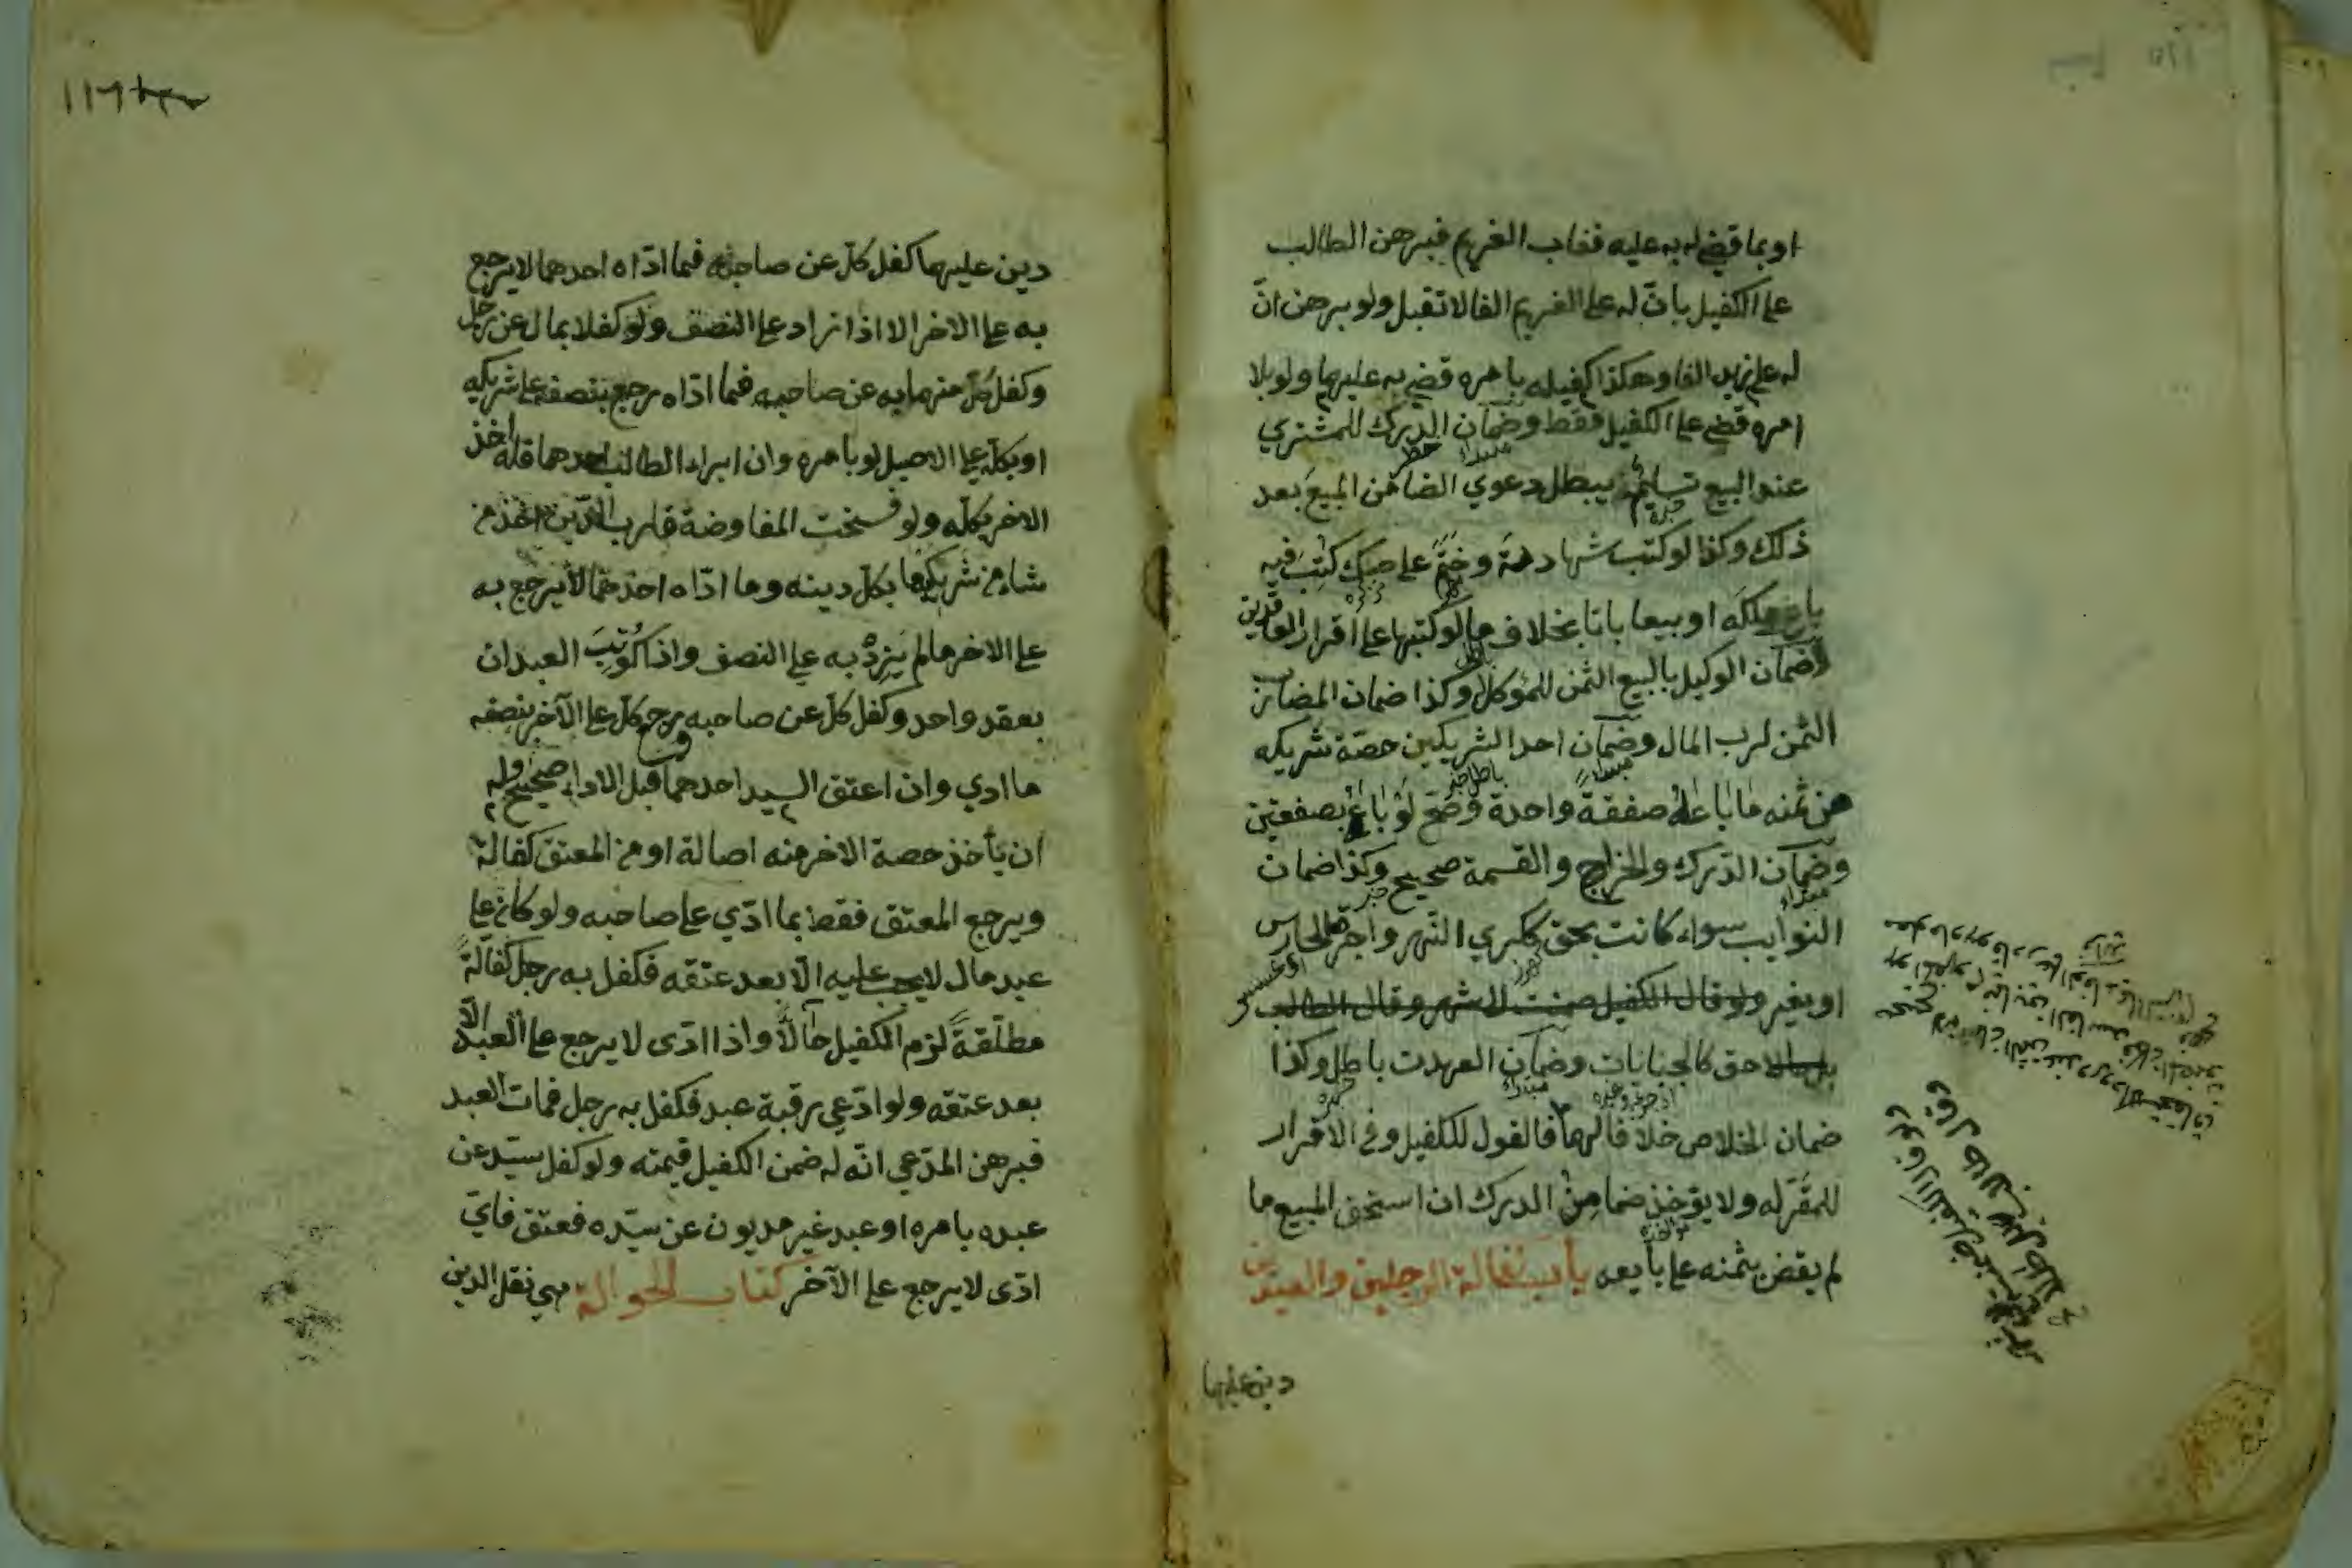 او بما قضي له به عليه فغاب الغريم فبرهن الطالب
على الكفيل بانّ له على الغريم الفا لا تقبل ولو برهن انّ
له على زيد الفا وهكذا كفيله بامره قضي به عليهما ولو بلا
امره قضي على الكفيل فقط وضمان الدّرك للمشتري
عند البيع تسليم يبطل دعوي الضامن المبيع بعد
ذلك وكذا لو كتب شهادته وختم على صك كتب فيه
باع ملكه او بيعا باتا بخلاف ما لو كتبها على اقرار العاقدين
ضمان الوكيل بالبيع الثمن للموكل وكذا ضمان المضارب
الثمن لرب المال وضمان احد الشريكين حصّة شريكه
من ثمنه ما باعاه صفقة واحدة وصح لو باع بصفقتين
وضمان الدّرك والخراج والقسمة صحيح وكذا ضمان
النوايب سواء كانت بحق ككري النهر واجرة الحارس
او بغير ولو قال الكفيل ضمنت الى شهر وقال الطالب
حق كالجبايات وضمان العهدت باطل وكذا
ضمان الخلاص خلافا لهما فالقول للكفيل وفي الاقرار
للمقرّ له ولا يؤخذ ضامن الدرك ان استحق المبيع ما
لم يقض بثمنه على بايعه باب كفالة الرجلين والعبدين
دين عليهما
١١٦
دين عليهما كفل كلّ عن صاحبه فما ادّاه احدهما لا يرجع
به على الاخر الا اذا زاد على النصف ولو كفلا بمال عن رجل
وكفل كلّ منهما به عن صاحبه فما ادّاه رجع بنصفه على شريكه
او بكلّه على الاصيل لو بامره وان ابراء الطالب احدهما فله اخذ
الاخر بكلّه ولو فسخت المفاوضة فلرب الدّين اخذ من
شاء من شريكيها بكل دينه وما ادّاه احدهما لا يرجع به
على الاخر ما لم يزد به على النصف واذا كوتب العبدان
بعقد واحد وكفل كلّ عن صاحبه رجع كلّ على الآخر بنصف
ما ادي وان اعتق السيد احدهما قبل الاداء صحيح وله
ان يأخذ حصة الاخر منه اصالة او من المعتق كفالة
ويرجع المعتق فقط بما ادّي على صاحبه ولو كان على
عبد مال لا يجب عليه الّا بعد عتقه فكفل به رجل كفالةً
مطلّقةً لزم الكفيل حالّاً واذا ادّى لا يرجع على العبد الّا
بعد عتقه ولو ادّعي رقبة عبد فكفل به رجل فمات العبد
فبرهن المدّعي انّه له ضمن الكفيل قيمته ولو كفل سيّد عن
عبده بامره او عبد غير مديون عن سيّده فعتق فايّ
ادّى لا يرجع على الآخر كتاب الحوالة هي نقل الدين